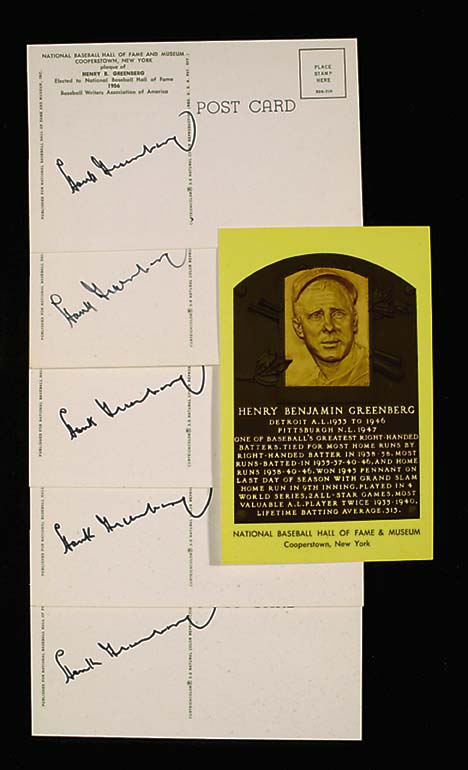 NATIONAL BASEBALL HALL OF FAME AND MUSEUM
COOPERSTOWN, NEW YORK
plaque of
HENRY B. GREENBERG
Elected to National Baseball Hall of Fame
1956
Baseball Writers Association of America
PLACE
STAMP
HERE
POST CARD
Hank Greenberg
Hank Greenberg
Hank Greenberg
Hank Greenberg
Hank Greenberg
HENRY BENJAMIN GREENBERG
DETROIT A.L. 1933 TO 1946
PITTSBURGH N.L. 1947
ONE OF BASEBALL'S GREATEST RIGHT-HANDED
BATTERS. TIED FOR MOST HOME RUNS BY
RIGHT-HANDED BATTER IN 1938-58. MOST
RUNS-BATTED-IN 1935-37-40-46, AND HOME
RUNS 1938-40-46. WON 1945 PENNANT ON
LAST DAY OF SEASON WITH GRAND SLAM
HOME RUN IN 9TH INNING. PLAYED IN 4
WORLD SERIES, 2 ALL-STAR GAMES. MOST
VALUABLE A.L. PLAYER TWICE 1935-1940.
LIFETIME BATTING AVERAGE .313.
NATIONAL BASEBALL HALL OF FAME & MUSEUM
Cooperstown, New York